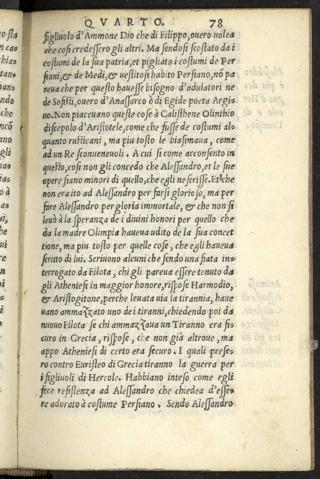 QVARTO. 78
figliuolo d'Ammone Dio che di Filippo, ouero uolea
che cosi credessero gli altri. Ma sendosi scostato da i
costumi de la sua patria, et pigliato i costumi de Per
siani, & de Medi, & uestitosi habito Persiano, nõ pa
reua che per questo hauesse bisogno d'adulatori ne
de Sofisti, ouero d'Anassarco ò di Egide poeta Argi-
uo. Non piaceuano queste cose à Calisthene Olinthio
discepolo d'Aristotele, come che fusse de costumi als
quanto rusticani, ma piu tosto le biasimaua, come
ad un Re sconueneuoli. A cui si come acconsento in
questo, cosi non gli concedo che Alessandro, et le sue
opere siano minori di quello, che egli ne scrisse. Et che
non era ito ad Alessandro per farsi glorioso, ma per
fare Alessandro per gloria immortale, & che non si
leuò à la speranza de i diuini honori per quello che
da la madre Olimpia haueua udito de la sua concet
tione, ma piu tosto per quelle cose, che egli haueua
scritto di lui. Scriuono alcuni che sendo una fiata in-
terrogato da Filota, chi gli pareua essere tenuto da
gli Atheniesi in maggior honore, rispose Harmodio,
& Aristogitone, perche leuata uia la tirannia, haue
uano ammazzato uno de i tiranni, chiedendo poi da
nuouo Filota se chi ammazzaua un Tiranno era si-
curo in Grecia, rispose, che non già altroue, ma
appo Atheniesi di certo era securo. I quali prese-
ro contro Euristeo di Grecia tiranno la guerra per
i figliuoli di Hercole. Habbiano inteso come egli
fece resistenza ad Alessandro che chiedea d'esse-
re adorato à costume Persiano. Sendo Alessandro